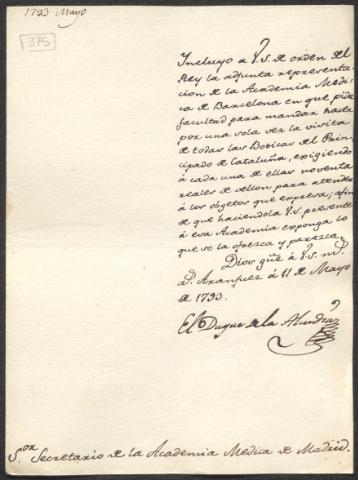 1793 Mayo
375
Incluyo à V.S. de orden del
Rey la adjunta representa-
cion de la Academia Medi-
ca de Barcelona en que pide
facultad para mandar hacer
por una sola vez la visita
de todas las Boticas del Prin-
cipado de Cataluña, exigiendo
à cada una de ellas noventa
reales de vellon para atender
à los objetos que expresa; afin
de que haciendola V.S. presente
à esa Academia exponga lo
que se la ofrezca y parezca.
Dios gũe à V.S. m.s
a.s Aranjuez à 11 de Mayo
de 1793.
El Duque de la Alcudia
S.or Secretario de la Academia Medica de Madrid.